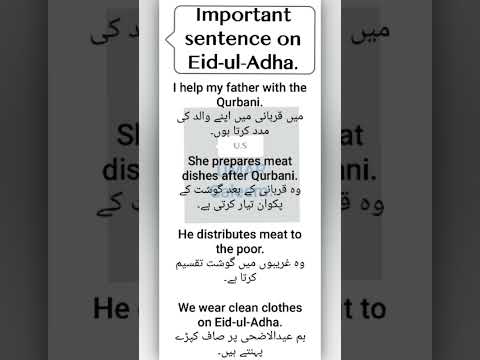 Important
sentence on
Eid-ul-Adha.
I help my father with the
Qurbani.
میں قربانی میں اپنے والد کی
مدد کرتا ہوں۔
U.S
She prepares meat
dishes after Qurbani.
وہ قربانی کے بعد گوشت کے
پکوان تیار کرتی ہے۔
He distributes meat to
the poor.
وہ غریبوں میں گوشت تقسیم
کرتا ہے۔
We wear clean clothes
on Eid-ul-Adha.
ہم عیدالاضحی پر صاف کپڑے
پہنتے ہیں۔